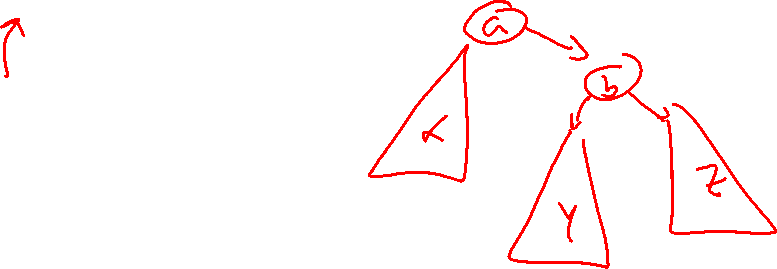 a
b
x
Y
Z